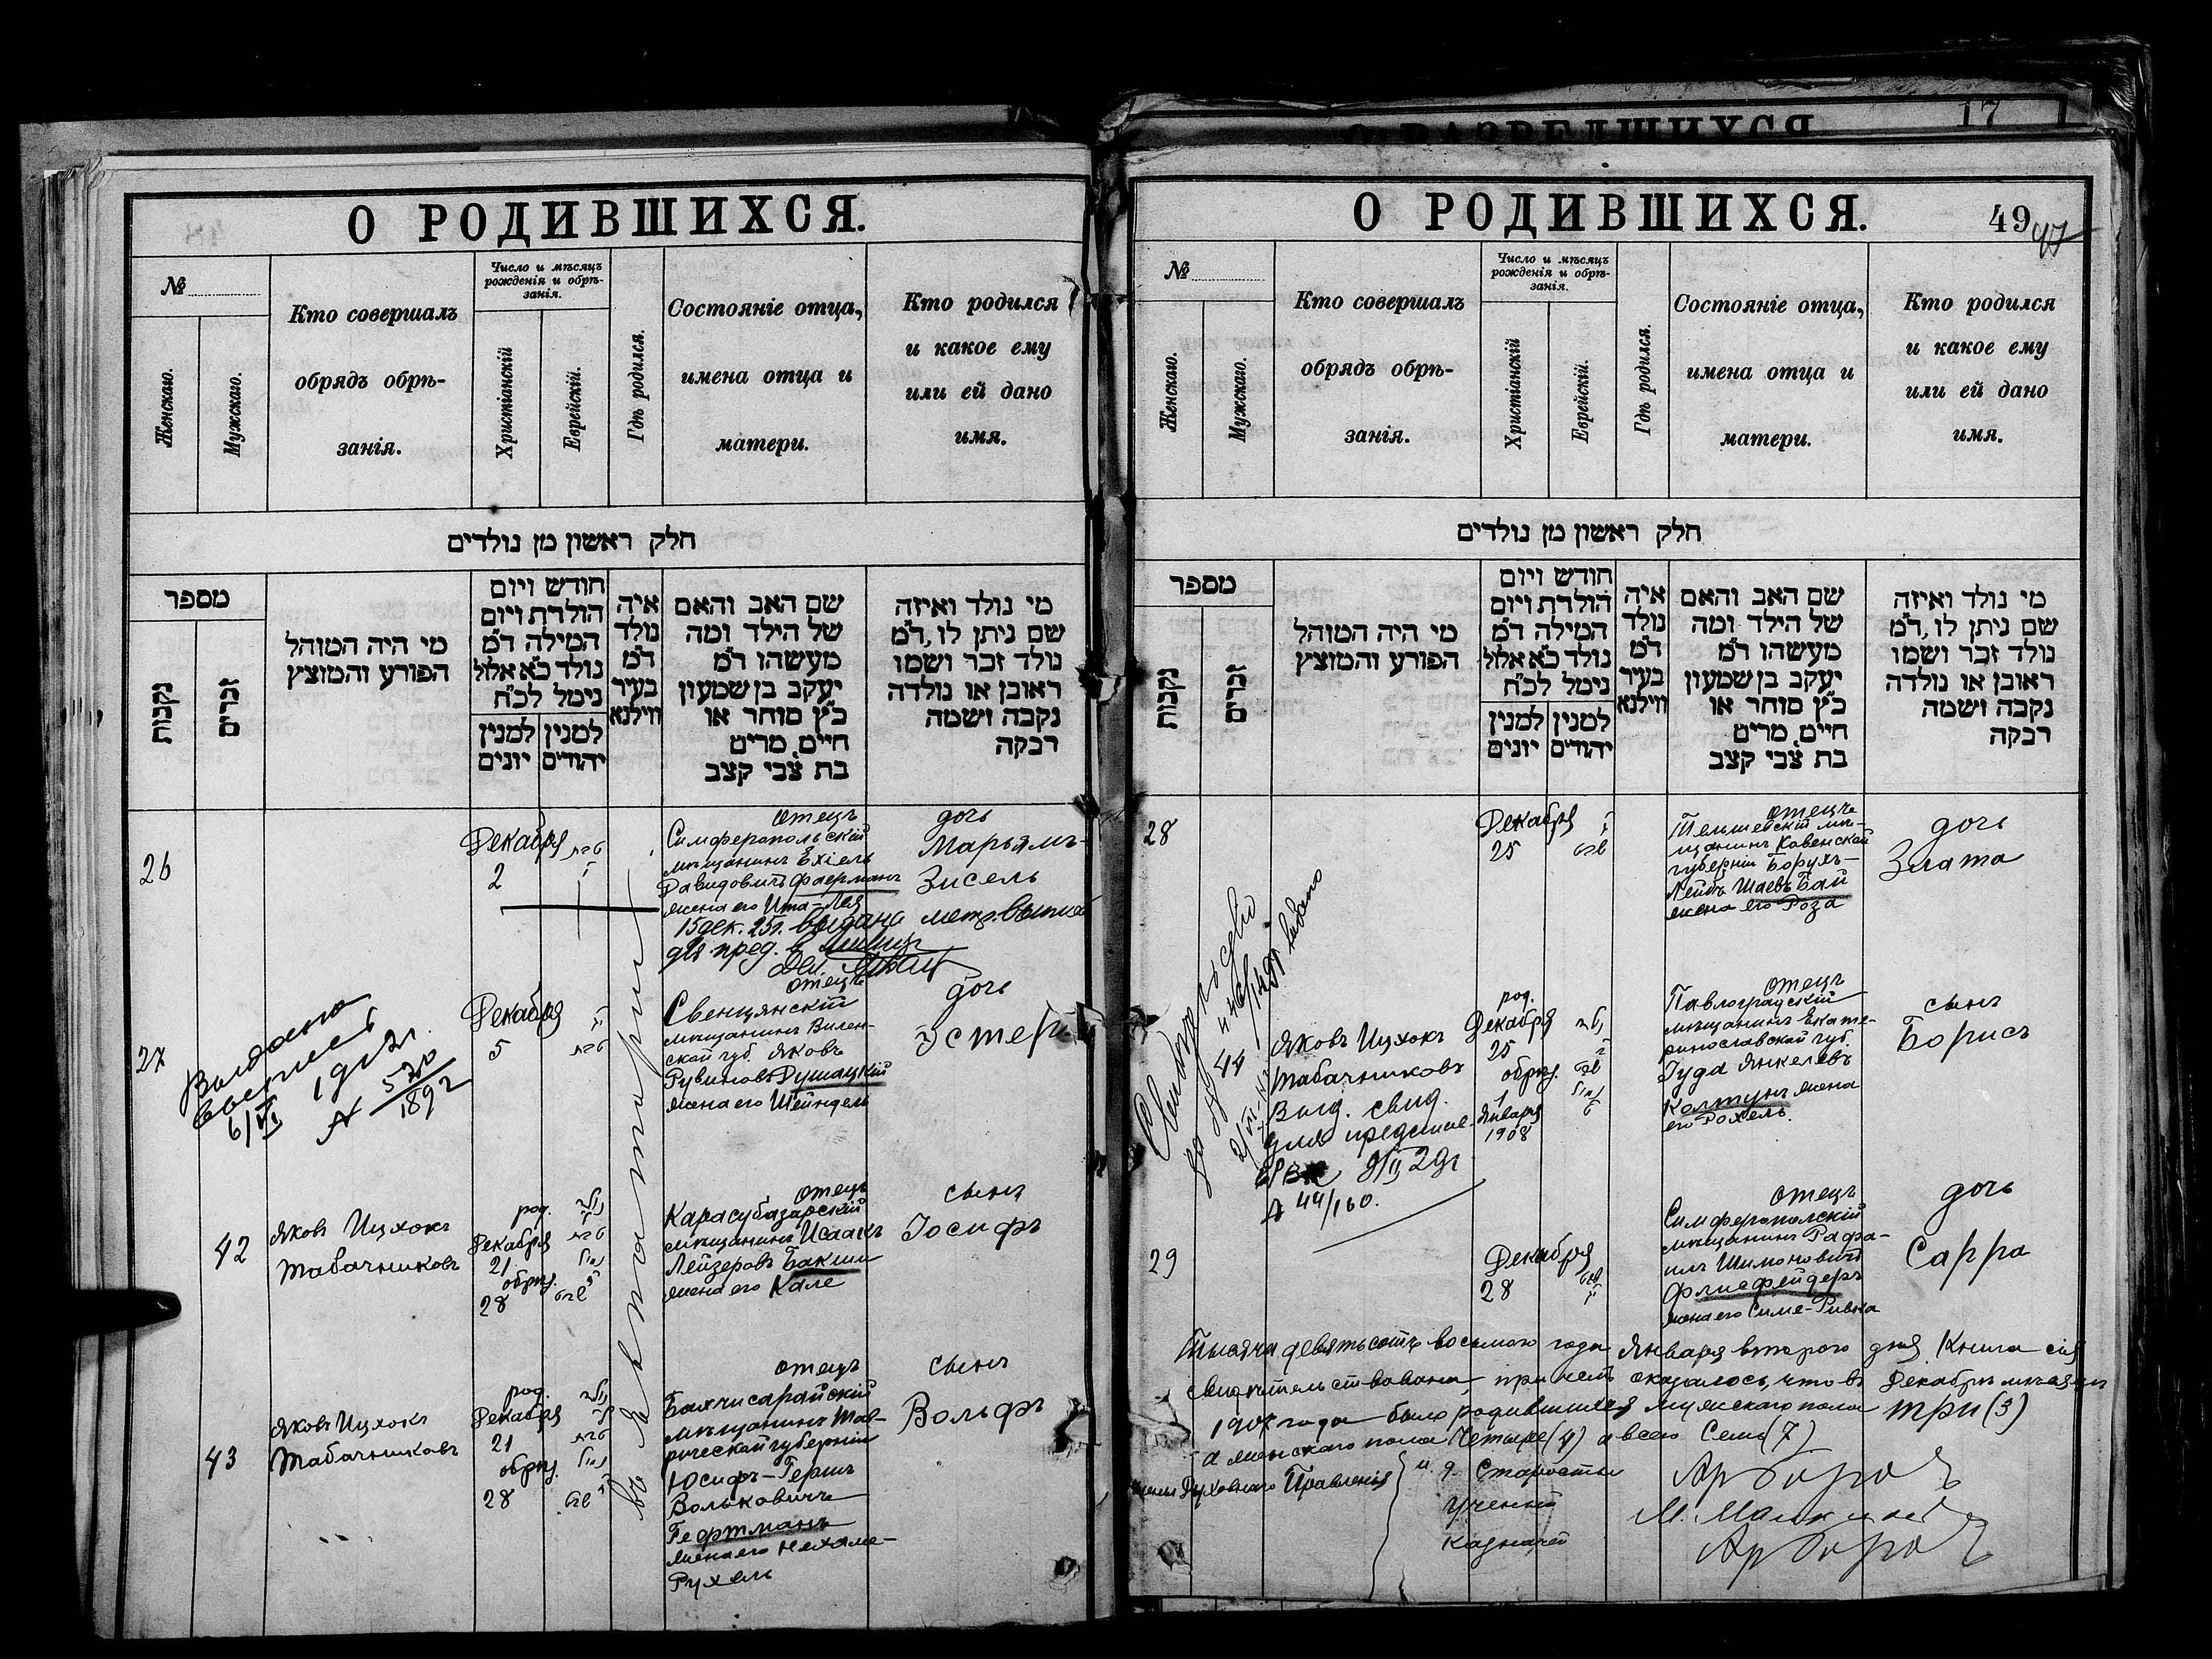 17
О РОДИВШИХСЯ.
№
Женскаго.
Мужскаго.
Кто совершалъ
обрядъ обрѣ-
занія.
Число и мѣсяцъ
рожденія и обрѣ-
занія.
Христіанскій
Еврейскій.
Гдѣ родился.
Состояніе отца,
имена отца и
матери.
Кто родился
и какое ему
или ей дано
имя.
חלק ראשון מן נולדים
מספר
נקבות
זכרים
מי היה המוהל
הפורע והמוצץ
חודש ויום
הולדת ויום
המילה ד״מ
נולד כ״א אלול
נימל לכ״ח
למנין יונים
למנין יהודים
איה
נולד
ד״מ
בעיר
ווילנא
שם האב והאם
של הילד ומה
מעשהו ד״מ
יעקב בן שמעון
כ״ץ סוחר או
חיים מרים
בת צבי קצב
מי נולד ואיזה
שם ניתן לו, ד״מ
נולד זכר ושמו
ראובן או נולדה
נקבה ושמה
רבקה
26
Декабря
2
отецъ
Симферопольскій
мѣщанинъ Ехіель
Давидовичъ Фаерманъ
жена его Ита-Лея
15 дек. 25г. выдана метр. выпись
для пред. в
дочь
Марьямъ-
Зисель
27
Выдано
6/VI 1912г.
№ 520/1892
Декабря
5
отецъ
Свенцянскій
мѣщанинъ Вилен-
ской губ. Яковъ
Рувиновъ Душацкій
жена его Шейндель
дочь
Эстеръ
42
Яковъ Ицхокъ
Табачниковъ
род.
Декабря
21
обрѣз.
28
отецъ
Карасубазарскій
мѣщанинъ Исаакъ
Лейзеровъ Бакши
жена его Кале
сынъ
Іосифъ
43
Яковъ Ицхокъ
Табачниковъ
род.
Декабря
21
обрѣз.
28
въ Евпаторіи
отецъ
Бахчисарайскій
мѣщанинъ Тав-
рической губерніи
Іосифъ-Герш
Вольковичъ
Гефтманъ
жена его Нехаме-
Рухель
сынъ
Вольфъ
О РОДИВШИХСЯ.
49
47
№
Женскаго.
Мужскаго.
Кто совершалъ
обрядъ обрѣ-
занія.
Число и мѣсяцъ
рожденія и обрѣ-
занія.
Христіанскій
Еврейскій.
Гдѣ родился.
Состояніе отца,
имена отца и
матери.
Кто родился
и какое ему
или ей дано
имя.
חלק ראשון מן נולדים
מספר
נקבות
זכרים
מי היה המוהל
הפורע והמוצץ
חודש ויום
הולדת ויום
המילה ד״מ
נולד כ״א אלול
נימל לכ״ח
למנין יונים
למנין יהודים
איה
נולד
ד״מ
בעיר
ווילנא
שם האב והאם
של הילד ומה
מעשהו ד״מ
יעקב בן שמעון
כ״ץ סוחר או
חיים מרים
בת צבי קצב
מי נולד ואיזה
שם ניתן לו, ד״מ
נולד זכר ושמו
ראובן או נולדה
נקבה ושמה
רבקה
28
Декабря
25
отецъ
Тельшевскій мѣ-
щанинъ Ковенской
губерніи Борухъ-
Лейбъ Шаевъ Бай
жена его Роза
дочь
Злата
Яковъ Ицхокъ
Табачниковъ
Выд. свид.
для представ.
9/II 29г.
№ 44/160.
род.
Декабря
25
обрѣз.
1
Января
1908
отецъ
Павлоградскій
мѣщанинъ Екате-
ринославской губ.
Іуда Янкелевъ
Колтунъ жена
его Рохель.
сынъ
Борисъ
29
Декабря
28
отецъ
Симферополскій
мѣщанинъ Рафа-
илъ Шимоновичъ
Флисфейдеръ
жена его Симе-Ривка
дочь
Сарра
Тысяча девятьсотъ восьмого года Января второго дня. Книга сія
свидѣтельствована, при чемъ оказалось, что въ Декабрѣ мѣсяцѣ
1907 года было родившихся мужскаго пола три (3)
а женскаго пола Четыре (4) а всего Семь (7)
Духовнаго Правленія
и д. Старосты
Ученый
Казначей